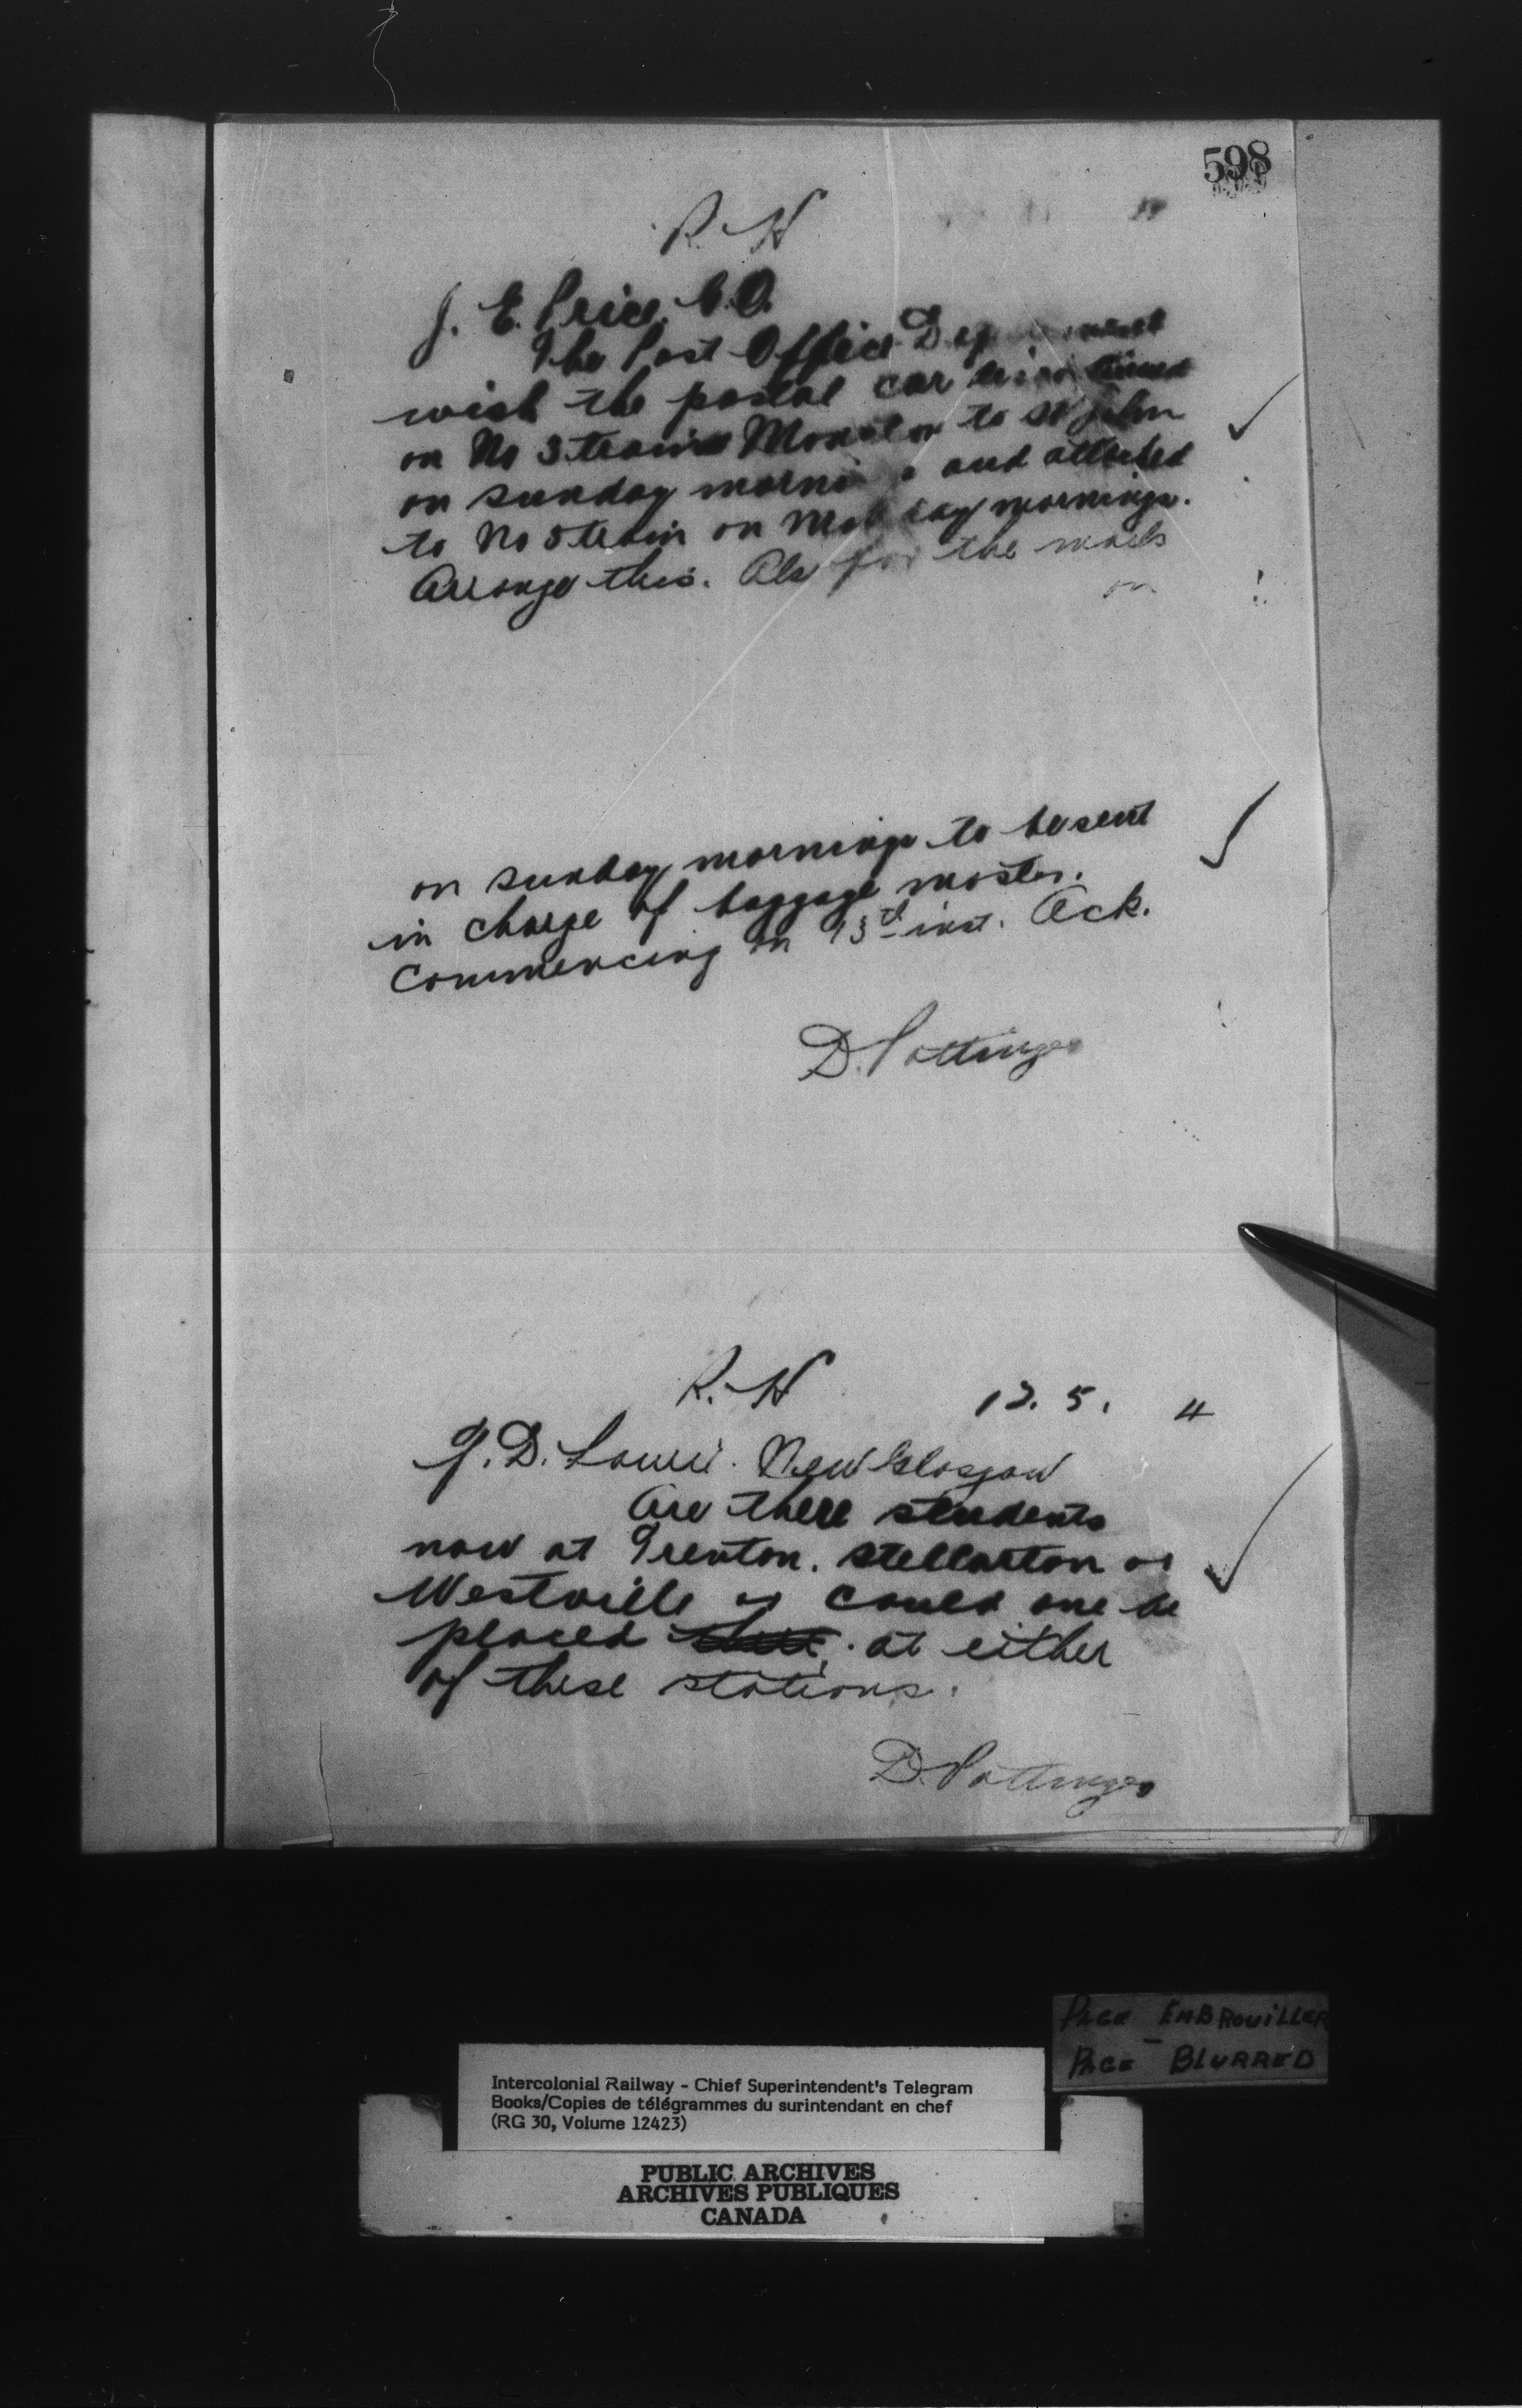 598
R. H
J. E. Price. C.O.
The Post Office
wish the postal car
on No 3 train Moncton to St John
on sunday morning and attached
to No 3 train on Monday mornings.
Arrange this. Also for the mails
on
on sunday mornings to be sent
in charge of baggage master.
Commencing on 13th inst. Ack.
D. Pottinger
R. H 12. 5. 4
J. D. Lowrie. New Glasgow
Are there students
now at Trenton. Stellarton or
Westville or could one be
placed at either
of these stations.
D. Pottinger
PAGE EMBROUILLER
PAGE BLURRED
Intercolonial Railway - Chief Superintendent's Telegram
Books/Copies de télégrammes du surintendant en chef
(RG 30, Volume 12423)
PUBLIC ARCHIVES
ARCHIVES PUBLIQUES
CANADA